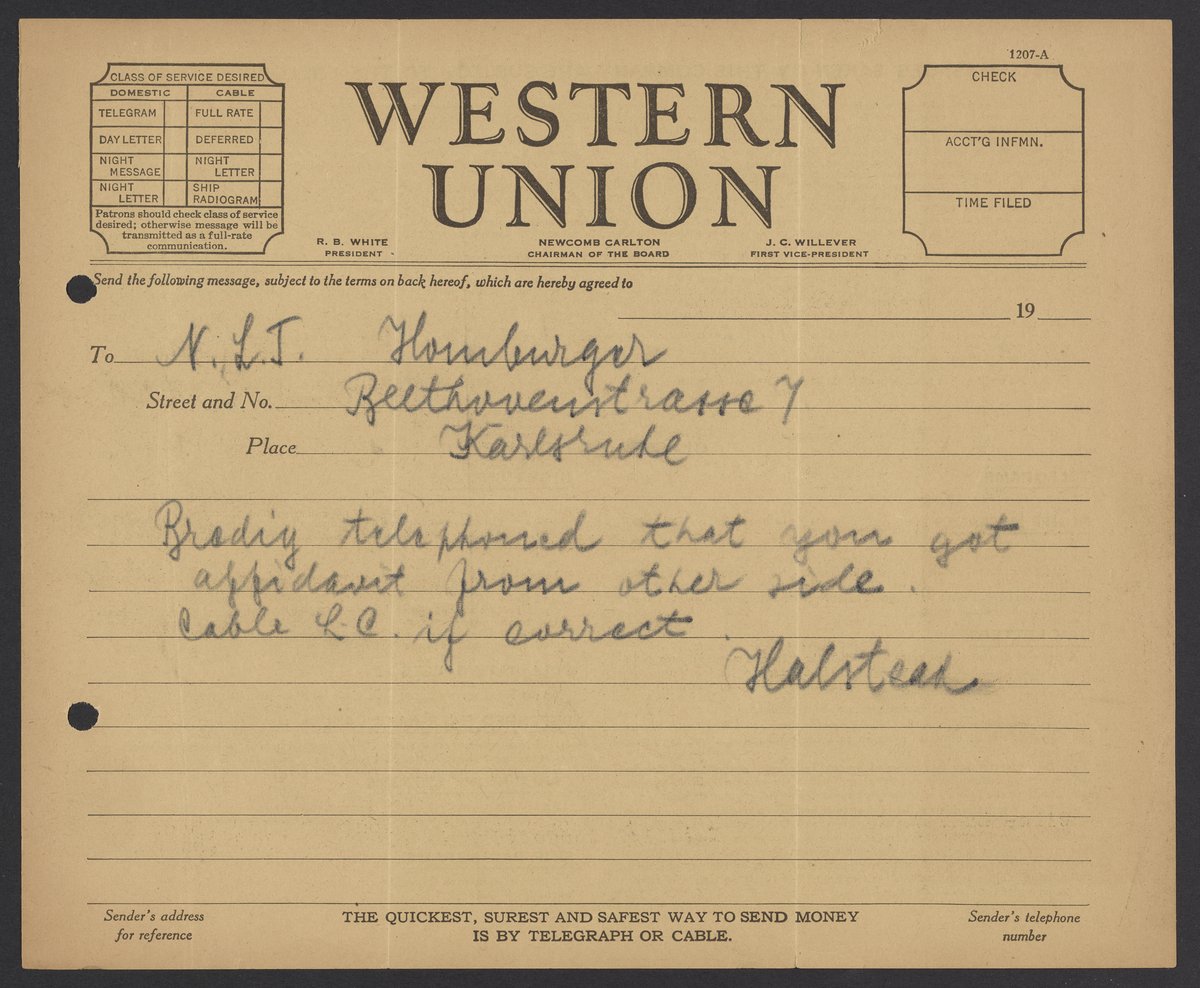 1207-A
CLASS OF SERVICE DESIRED
DOMESTIC CABLE
TELEGRAM FULL RATE
DAY LETTER DEFERRED
NIGHT MESSAGE NIGHT LETTER
NIGHT LETTER SHIP RADIOGRAM
Patrons should check class of service
desired; otherwise message will be
transmitted as a full-rate
communication.
WESTERN
UNION
R. B. WHITE
PRESIDENT
NEWCOMB CARLTON
CHAIRMAN OF THE BOARD
J. C. WILLEVER
FIRST VICE-PRESIDENT
CHECK
ACCT'G INFMN.
TIME FILED
Send the following message, subject to the terms on back hereof, which are hereby agreed to
19
To N.L.T. Homburger
Street and No. Beethovenstrasse 7
Place Karlsruhe
Bredig telephoned that you got
affidavit from other side.
Cable L.C. if correct.
Halstead
Sender's address
for reference
THE QUICKEST, SUREST AND SAFEST WAY TO SEND MONEY
IS BY TELEGRAPH OR CABLE.
Sender's telephone
number